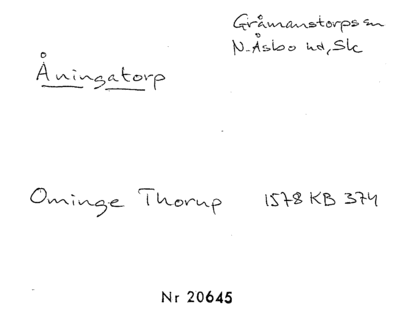 Gråmanstorps sn
N. Åsbo hd, Sk
Åningatorp
Ominge Thorup 1578 KB 374
Nr 20645